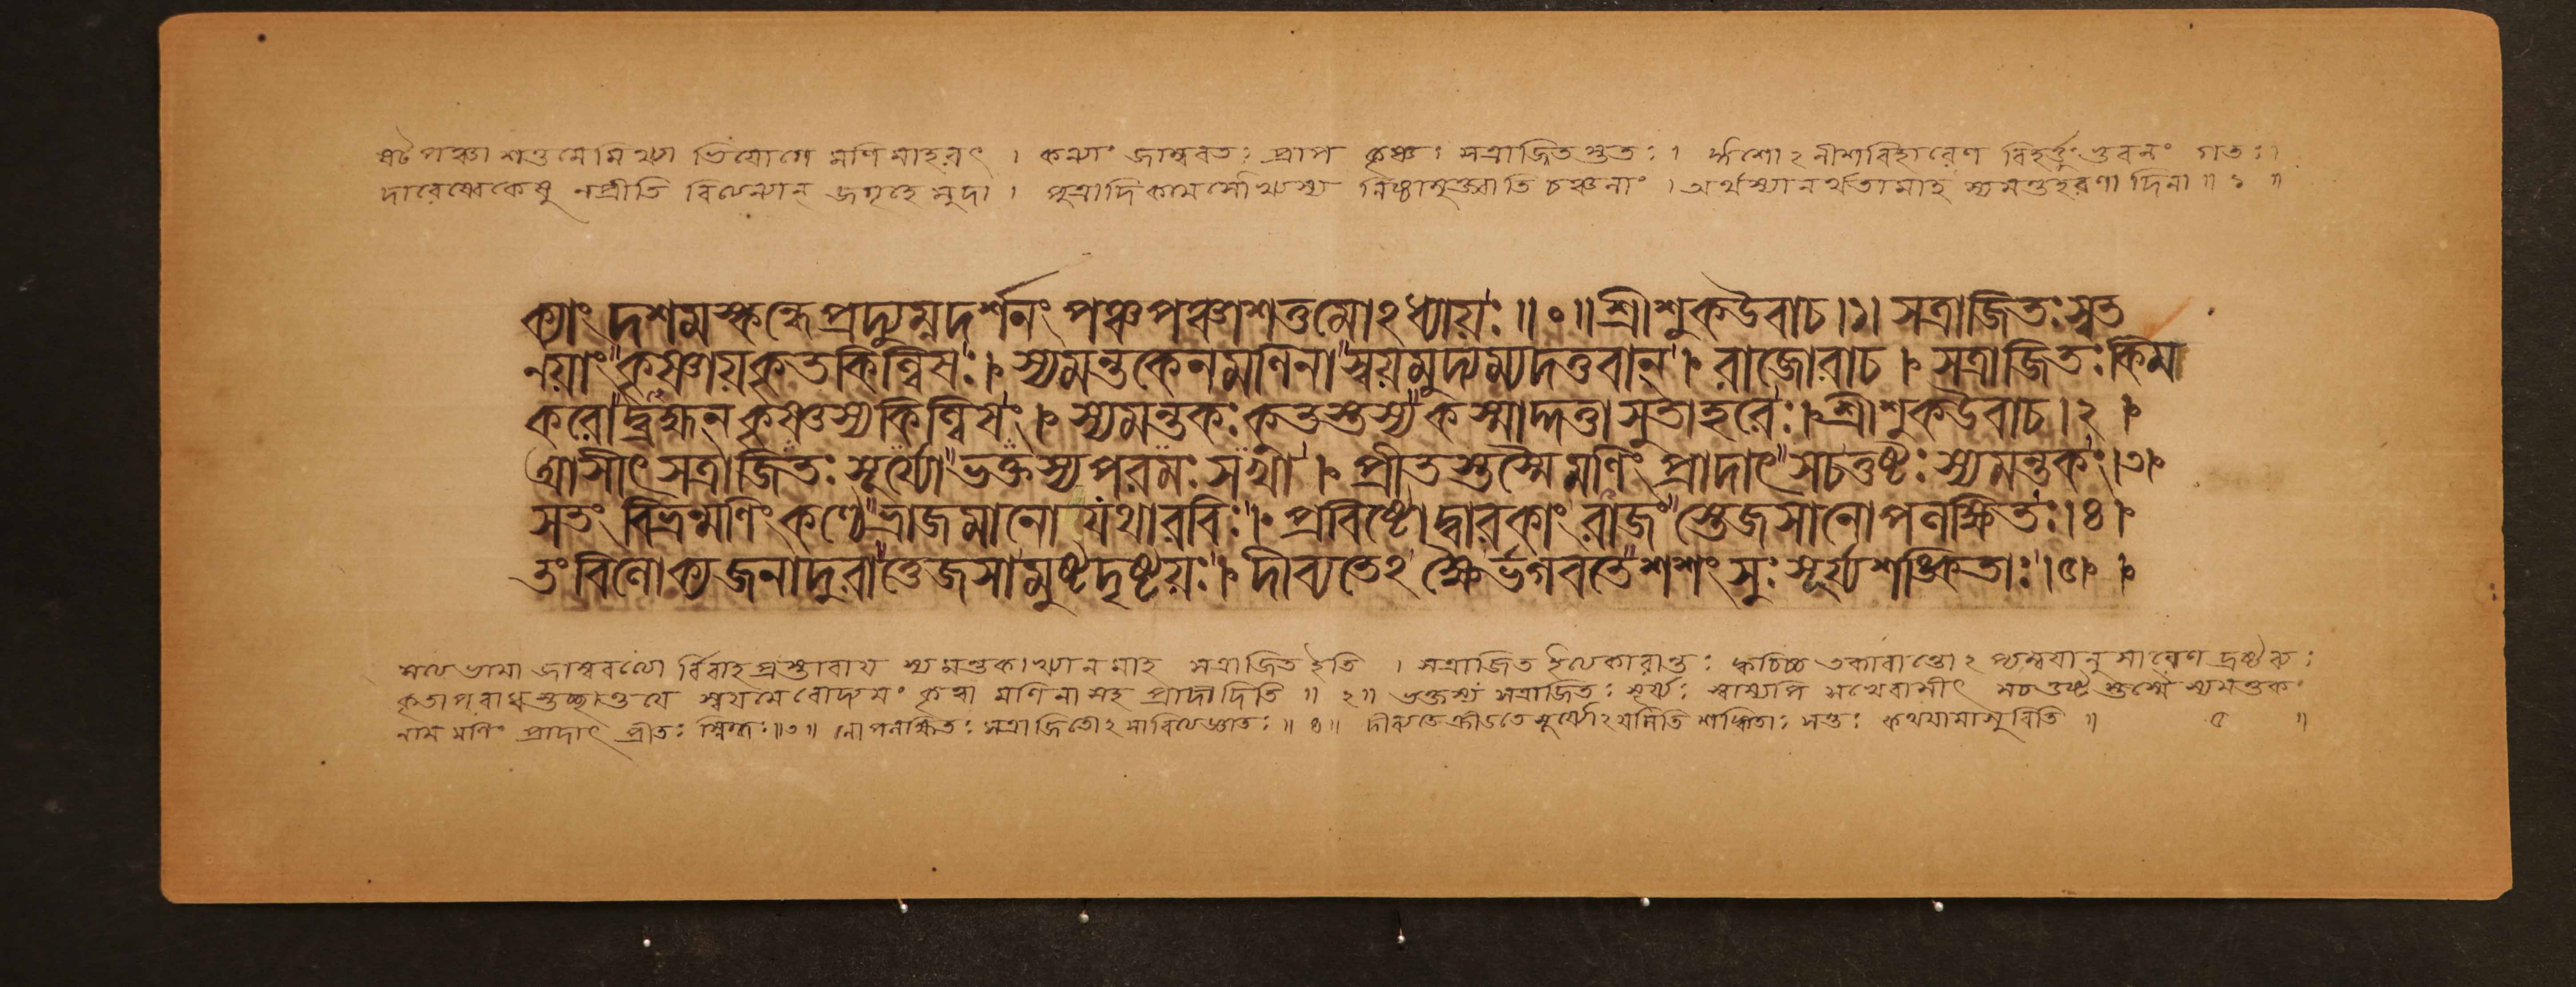 ষট্পঞ্চাশত্তমে মিথ্যাভিযোগে মণিমাহরৎ । কন্যাং জাম্ববতঃ প্রাপ কৃষ্ণঃ সত্রাজিতস্তুতঃ । র্হীশোঽনীশবিহারেণ বিহর্ত্তুং ভুবনং গতঃ ।
দারেষ্বেকেষু নপ্রীতি বিধেন্যান জগৃহে মুদা । পুত্রাদিকাম সৌখ্যস্য নিষ্ঠামুক্ত্বাতি চঞ্চলাং । অর্থস্যানর্থতামাহ স্যমন্তহরণাদিনা ॥ ১ ॥
ক্যাং দশমস্কন্ধে প্রদ্যুম্নদর্শনং পঞ্চপঞ্চাশত্তমোঽধ্যায়ঃ ॥ ০ ॥ শ্রীশুকউবাচ । ১ । সত্রাজিতঃ স্বত
নয়াং কৃষ্ণায়কৃতকিল্বিষঃ । স্যমন্তকেনমণিনা স্বয়মুদ্যম্যদত্তবান্ । রাজোবাচ । সত্রাজিতঃ কিম
করোদ্ব্রহ্মন কৃষ্ণস্যকিল্বিষং । স্যমন্তকঃ কুতস্তস্য কস্মাদ্দত্তা সুতাহরেঃ । শ্রীশুকউবাচ । ২ ।
আসীৎ সত্রাজিতঃ সূর্য্যো ভক্তস্যপরমঃ সখা । প্রীতস্তস্মৈ মণিং প্রাদাৎ সচতুষ্টঃ স্যমন্তকং । ৩ ।
সতং বিভ্রন্মণিং কণ্ঠে ভ্রাজমানো যথারবিঃ । প্রবিষ্টোদ্বারকাং রাজং স্তেজসানোপলক্ষিতঃ । ৪ ।
তং বিলোক্যজনাদূরাত্তেজসামুষ্টদৃষ্টয়ঃ । দীব্যতেঽক্ষৈর্ভগবতে শশংসুঃ সূর্য্যশঙ্কিতাঃ । ৫ ।
সত্যভামা জাম্ববত্যো র্বিবাহপ্রস্তাবায় স্যমন্তকাখ্যানমাহ সত্রাজিত ইতি । সত্রাজিত ইত্যেকারান্তঃ ক্বচিচ্চ তকারান্তোঽপ্যন্বয়ানুসারেণ দ্রষ্টব্যঃ
কৃতাপরাধস্তচ্ছান্তয়ে স্বয়মেবোদ্যমং কৃত্বা মণিনা সহ প্রাদাদিতি ॥ ২ ॥ ভক্তস্য সত্রাজিতঃ সূর্য্যঃ স্বাম্যপি সখেবাসীৎ সচতুষ্টস্তস্মৈ স্যমন্তকং
নাম মণিং প্রাদাৎ প্রীতঃ স্নিগ্ধঃ ॥ ৩ ॥ নোপলক্ষিতঃ সত্রাজিতোঽসাবিত্যেজ্ঞাতঃ ॥ ৪ ॥ দীব্যতে ক্রীড়তে সূর্য্যোঽয়মিতি শঙ্কিতাঃ সন্তঃ কথয়ামাসুরিতি ॥ ৫ ॥